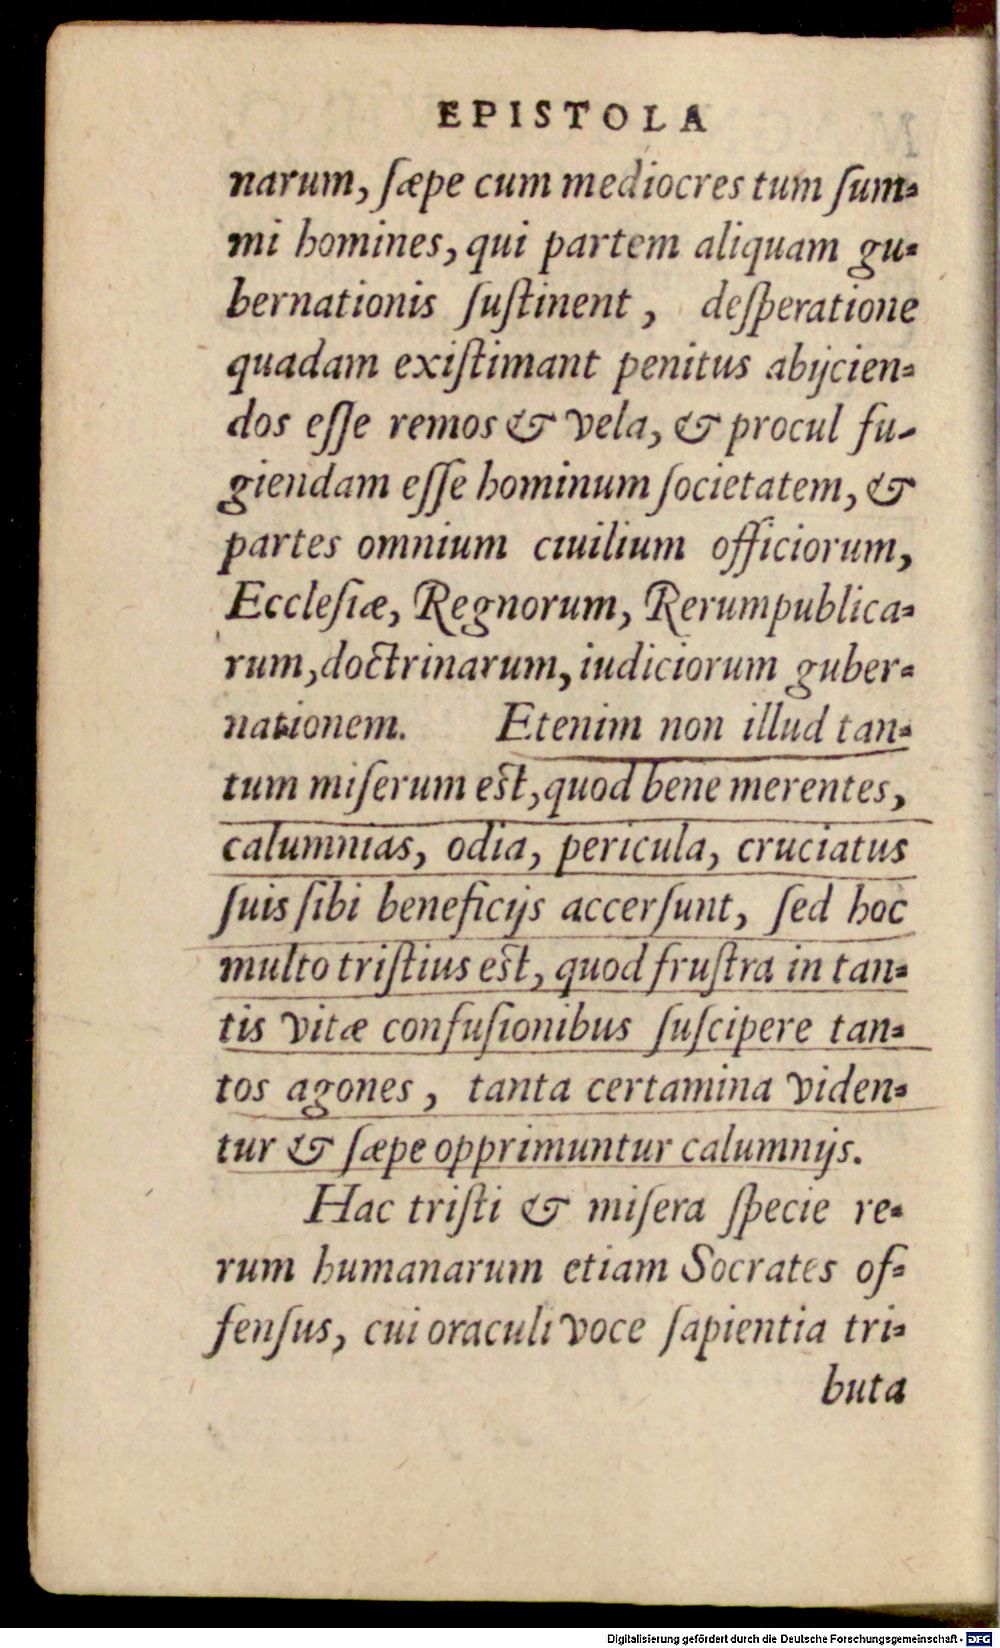 EPISTOLA
narum, ſæpe cum mediocres tum ſum-
mi homines, qui partem aliquam gu-
bernationis ſuſtinent, deſperatione
quadam exiſtimant penitus abijcien-
dos eſſe remos & vela, & procul fu-
giendam eſſe hominum ſocietatem, &
partes omnium ciuilium officiorum,
Eccleſiæ, Regnorum, Rerumpublica-
rum, doctrinarum, iudiciorum guber-
nationem. Etenim non illud tan-
tum miſerum eſt, quod bene merentes,
calumnias, odia, pericula, cruciatus
ſuis ſibi beneficijs accerſunt, ſed hoc
multo triſtius eſt, quod fruſtra in tan-
tis vitæ confuſionibus ſuſcipere tan-
tos agones, tanta certamina viden-
tur & ſæpe opprimuntur calumnijs.
Hac triſti & miſera ſpecie re-
rum humanarum etiam Socrates of-
fenſus, cui oraculi voce ſapientia tri-
buta
Digitalisierung gefördert durch die Deutsche Forschungsgemeinschaft - DFG